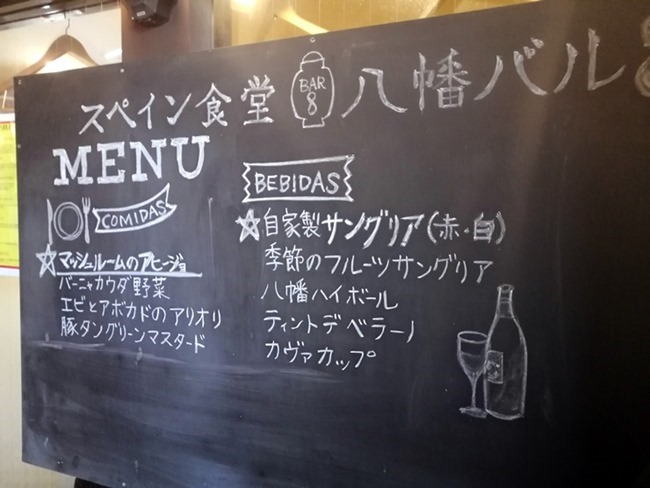 スペイン食堂 BAR 8 八幡バル
MENU
COMIDAS
マッシュルームのアヒージョ
バーニャカウダ野菜
エビとアボカドのアリオリ
豚タングリーンマスタード
BEBIDAS
自家製サングリア(赤・白)
季節のフルーツサングリア
八幡ハイボール
ティントデベラーノ
カヴァカップ